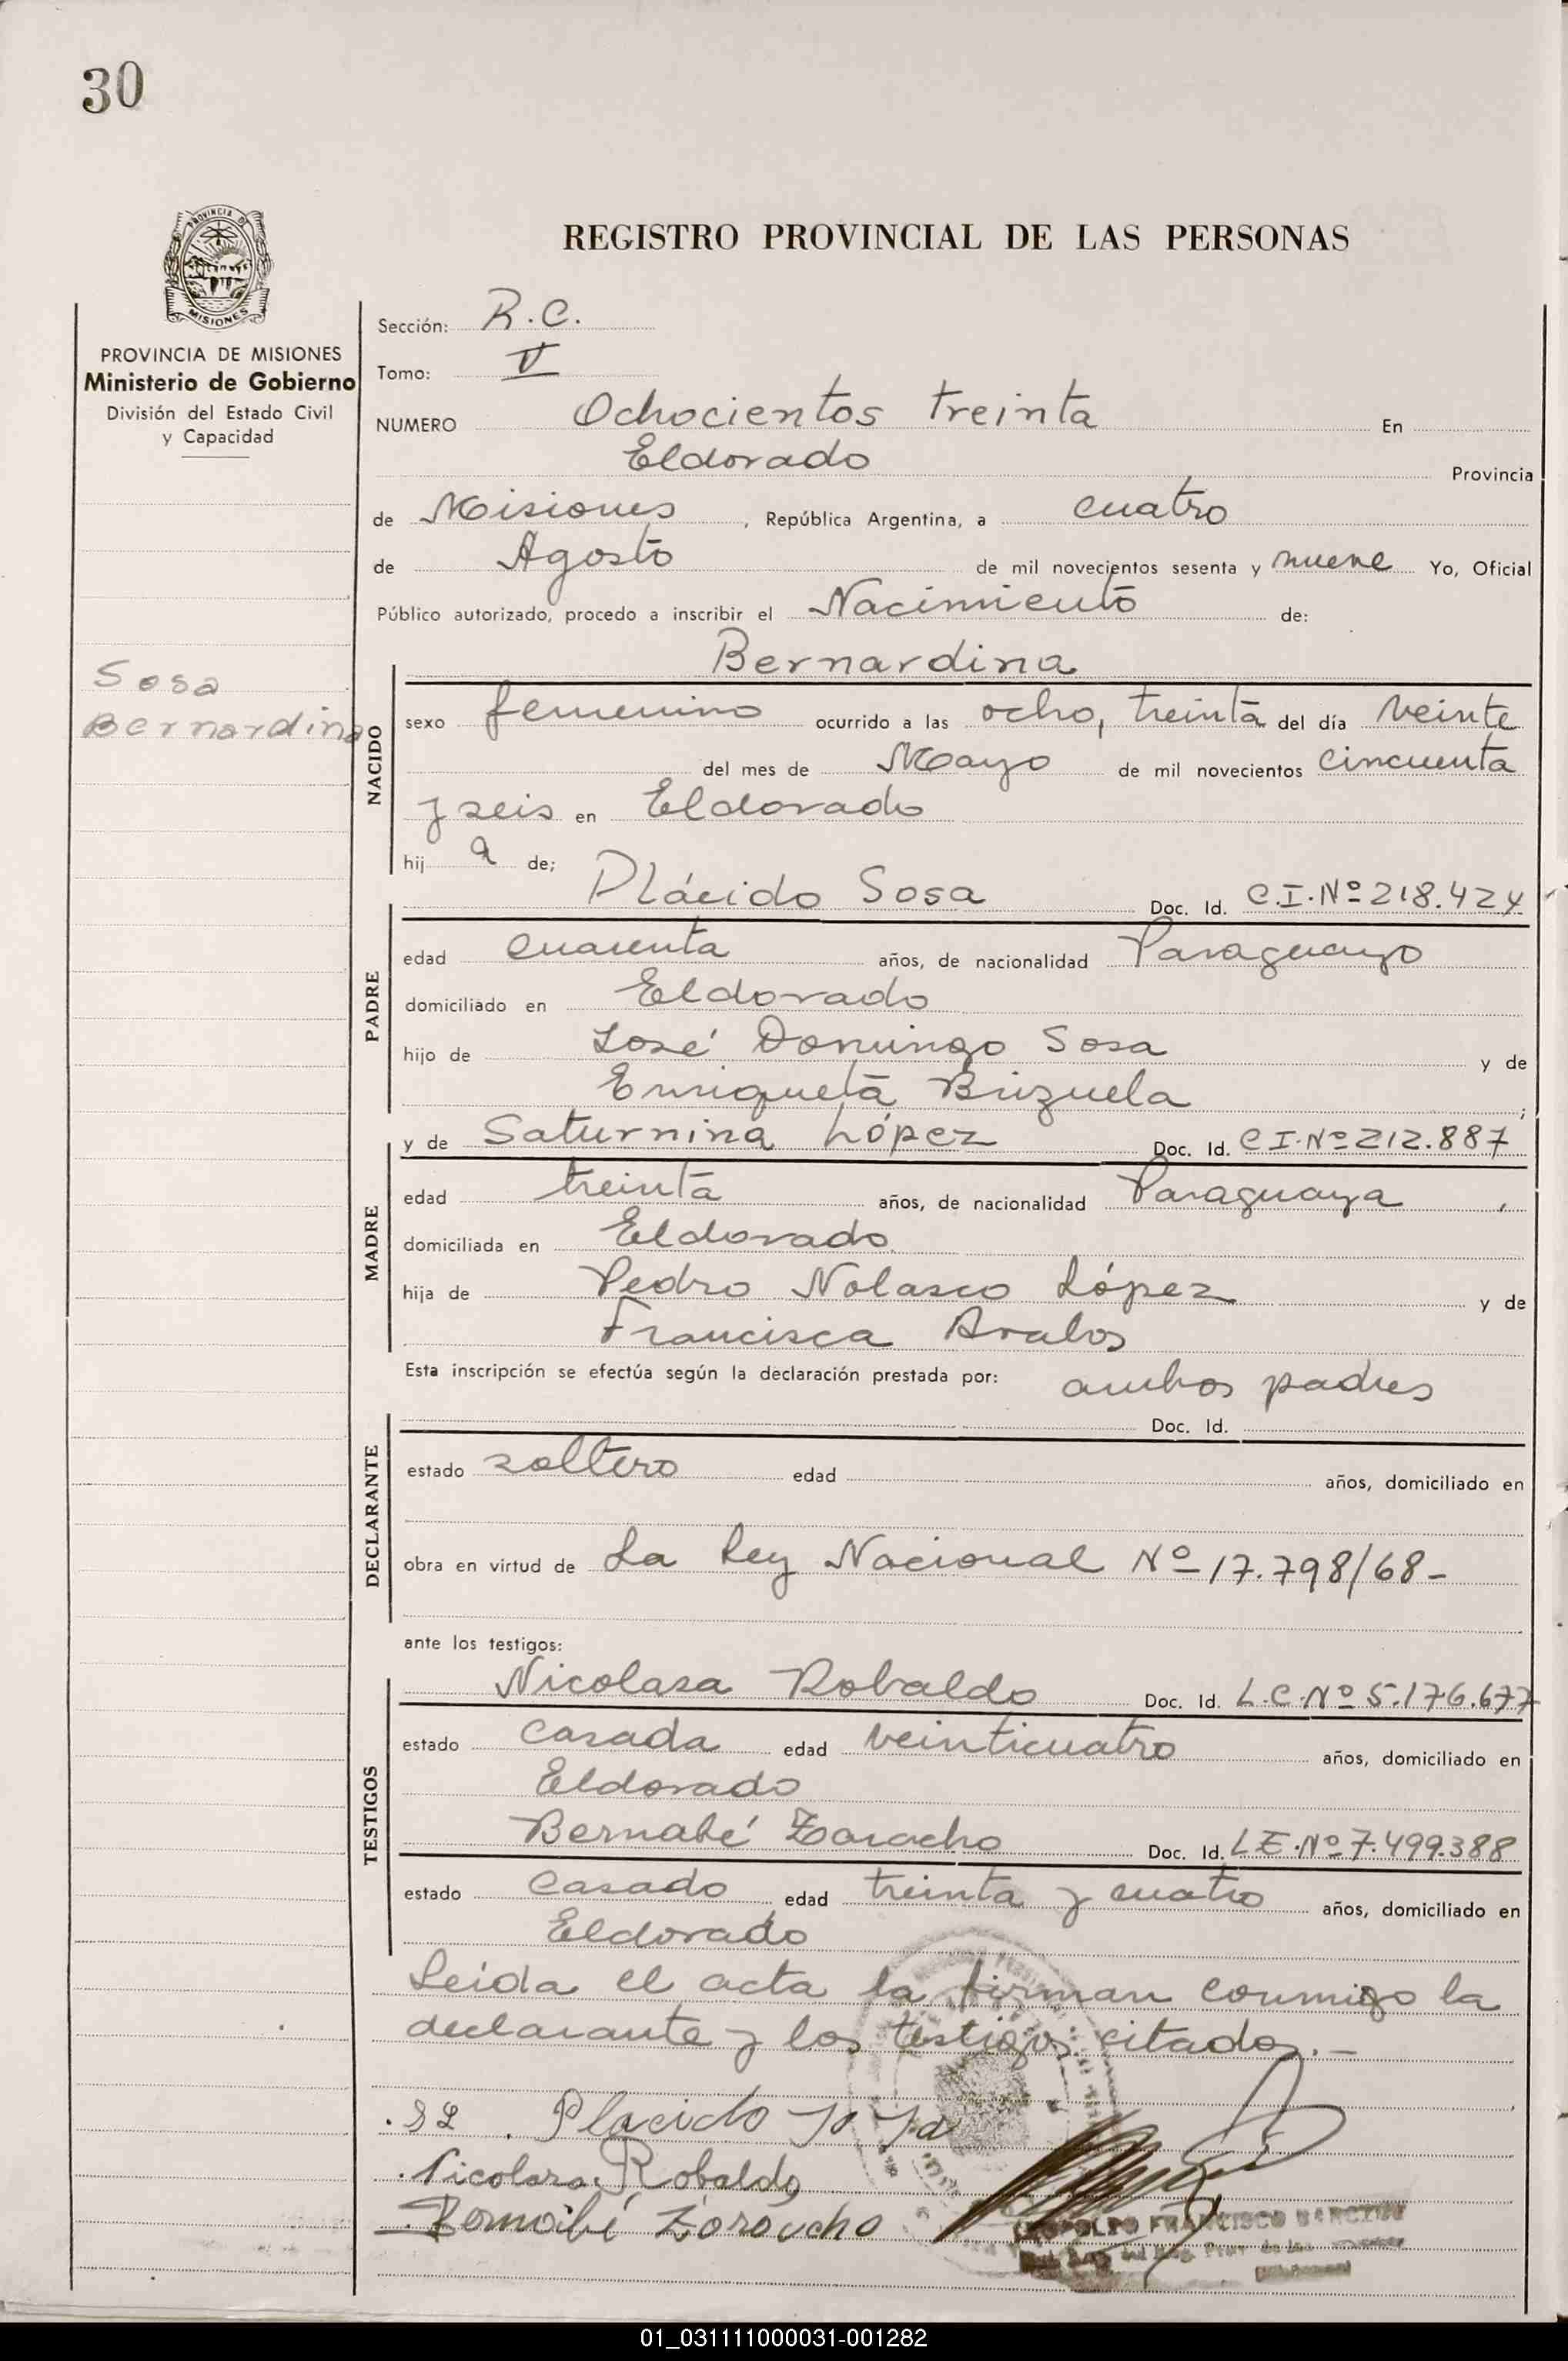 30
PROVINCIA DE
MISIONES
REGISTRO PROVINCIAL DE LAS PERSONAS
PROVINCIA DE MISIONES
Ministerio de Gobierno
División del Estado Civil
y Capacidad
Sosa
Bernardina
Sección: R.C.
Tomo: V
NUMERO Ochocientos treinta En
Eldorado Provincia
de Misiones, República Argentina, a cuatro
de Agosto de mil novecientos sesenta y nueve Yo, Oficial
Público autorizado, procedo a inscribir el Nacimiento de:
Bernardina
NACIDO
sexo femenino ocurrido a las ocho, treinta del día veinte
del mes de Mayo de mil novecientos cincuenta
y seis en Eldorado
hij a de;
Plácido Sosa Doc. Id. C.I.Nº 218.424
PADRE
edad cuarenta años, de nacionalidad Paraguayo
domiciliado en Eldorado
hijo de José Domingo Sosa y de
Enriqueta Brizuela ;
y de Saturnina López Doc. Id. C I.Nº 212.887
MADRE
edad treinta años, de nacionalidad Paraguaya ,
domiciliada en Eldorado
hija de Pedro Nolasco López y de
Francisca Avalos
Esta inscripción se efectúa según la declaración prestada por: ambos padres
Doc. Id.
DECLARANTE
estado soltero edad años, domiciliado en
obra en virtud de La Ley Nacional Nº 17.798/68-
ante los testigos:
Nicolasa Robaldo Doc. Id. L.C.Nº 5.176.677
TESTIGOS
estado casada edad veinticuatro años, domiciliado en
Eldorado
Bernabé Zaracho Doc. Id. L E.Nº 7.499.388
estado casado edad treinta y cuatro años, domiciliado en
Eldorado
Leida el acta la firman conmigo la
declarante y los testigos citados.-
S L Placido Sosa
Nicolasa Robaldo
Bernabé Zaracho
FRANCISCO
01_031111000031-001282